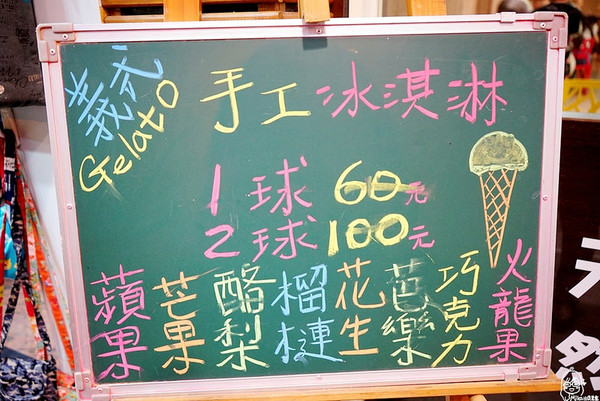 義式
Gelato
手工冰淇淋
1球 60元
2球 100元
蘋果
芒果
酪梨
榴槤
花生
芭樂
巧克力
火龍果
天然